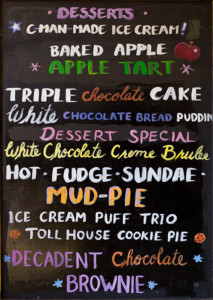 DESSERTS
C-MAN-MADE ICE CREAM!
BAKED APPLE
APPLE TART
TRIPLE chocolate CAKE
White CHOCOLATE BREAD PUDDIN
DESSERT SPECIAL
White Chocolate Creme Brulee
HOT-FUDGE-SUNDAE-
MUD-PIE
ICE CREAM PUFF TRIO
TOLL HOUSE COOKIE PIE
DECADENT Chocolate
BROWNIE